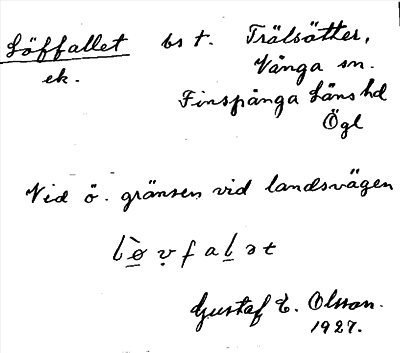 Löffallet bs t. Trälsätter,
ek. Vånga sn.
Finspånga Läns hd
Ögl
Vid ö. gränsen vid landsvägen
Gustaf E. Olsson.
1927.